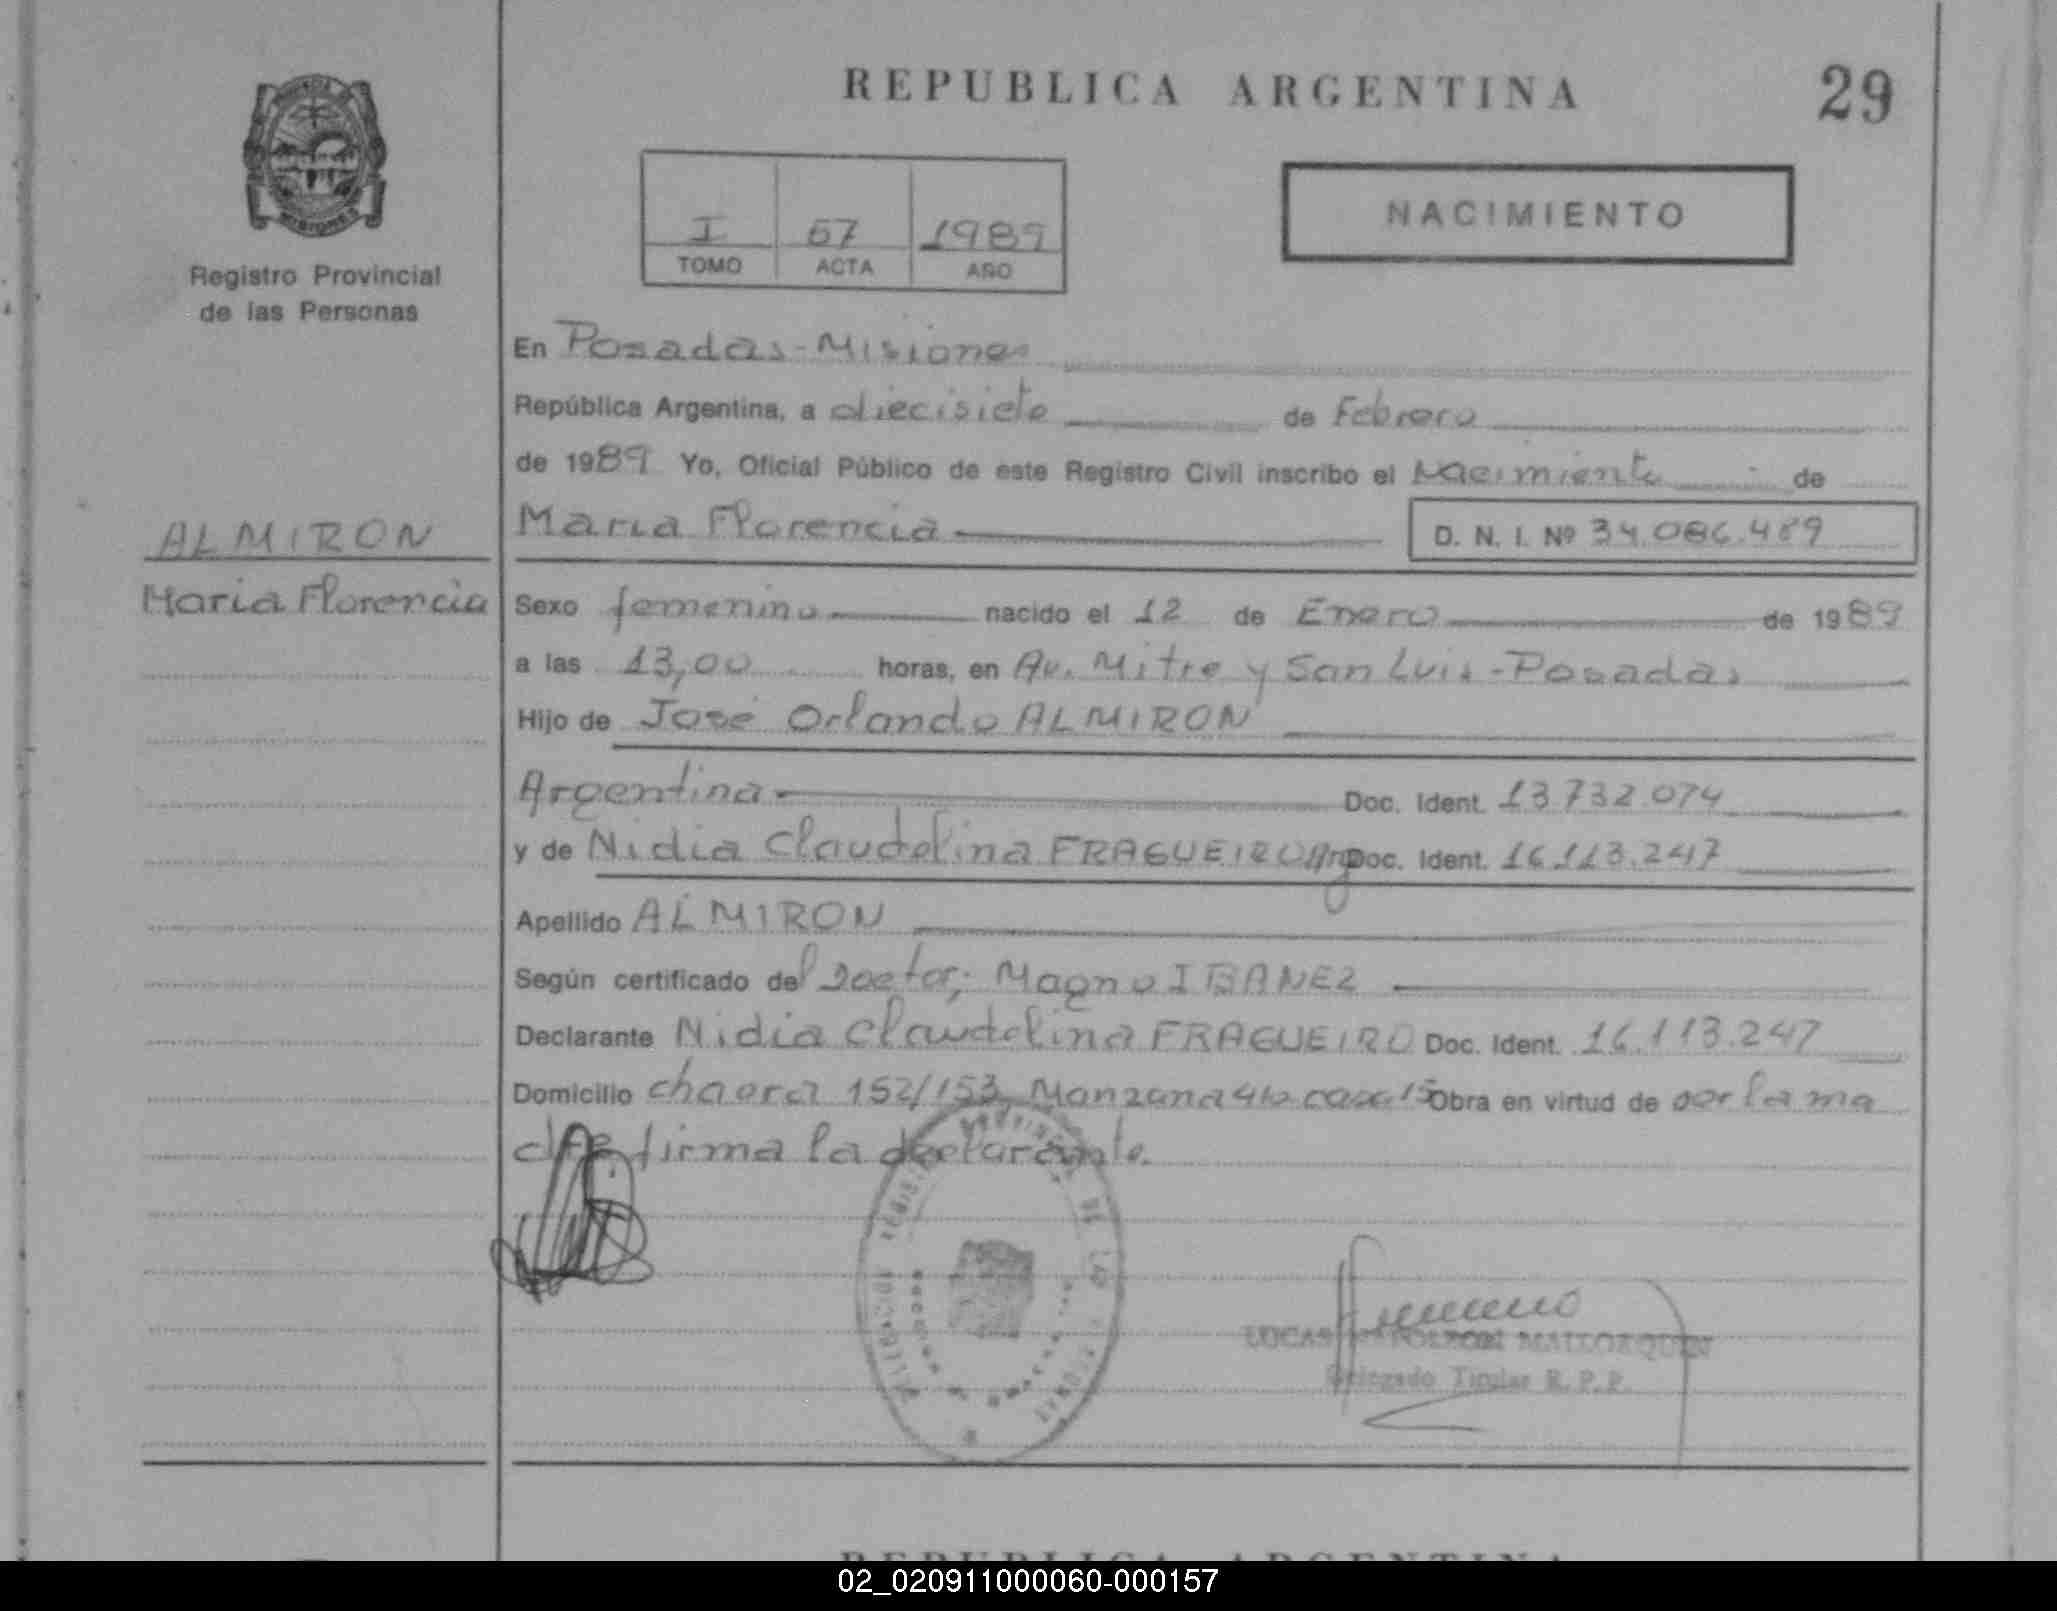 REPUBLICA ARGENTINA
29
I 57 1989
TOMO ACTA AÑO
NACIMIENTO
Registro Provincial
de las Personas
En Posadas - Misiones
República Argentina, a diecisiete de Febrero
de 1989 Yo, Oficial Público de este Registro Civil inscribo el Nacimiento de
Maria Florencia D. N. I. Nº 34.086.489
ALMIRON
Maria Florencia
Sexo femenino nacido el 12 de Enero de 1989
a las 13,00 horas, en Av. Mitre y San Luis - Posadas
Hijo de José Orlando ALMIRON
Argentina Doc. Ident. 13.732.074
y de Nidia Claudelina FRAGUEIRO Arg Doc. Ident. 16.113.247
Apellido ALMIRON
Según certificado del Doctor; Magno IBANEZ
Declarante Nidia Claudelina FRAGUEIRO Doc. Ident. 16.113.247
Domicilio chacra 152/153 Manzana casa 15 Obra en virtud de ser la ma
dre firma la declarante.
REGISTRO PROVINCIAL DE LAS PERSONAS
LUCAS NAPOLEON MALLORQUIN
Delegado Titular R. P. P.
REPUBLICA ARGENTINA
02_020911000060-000157